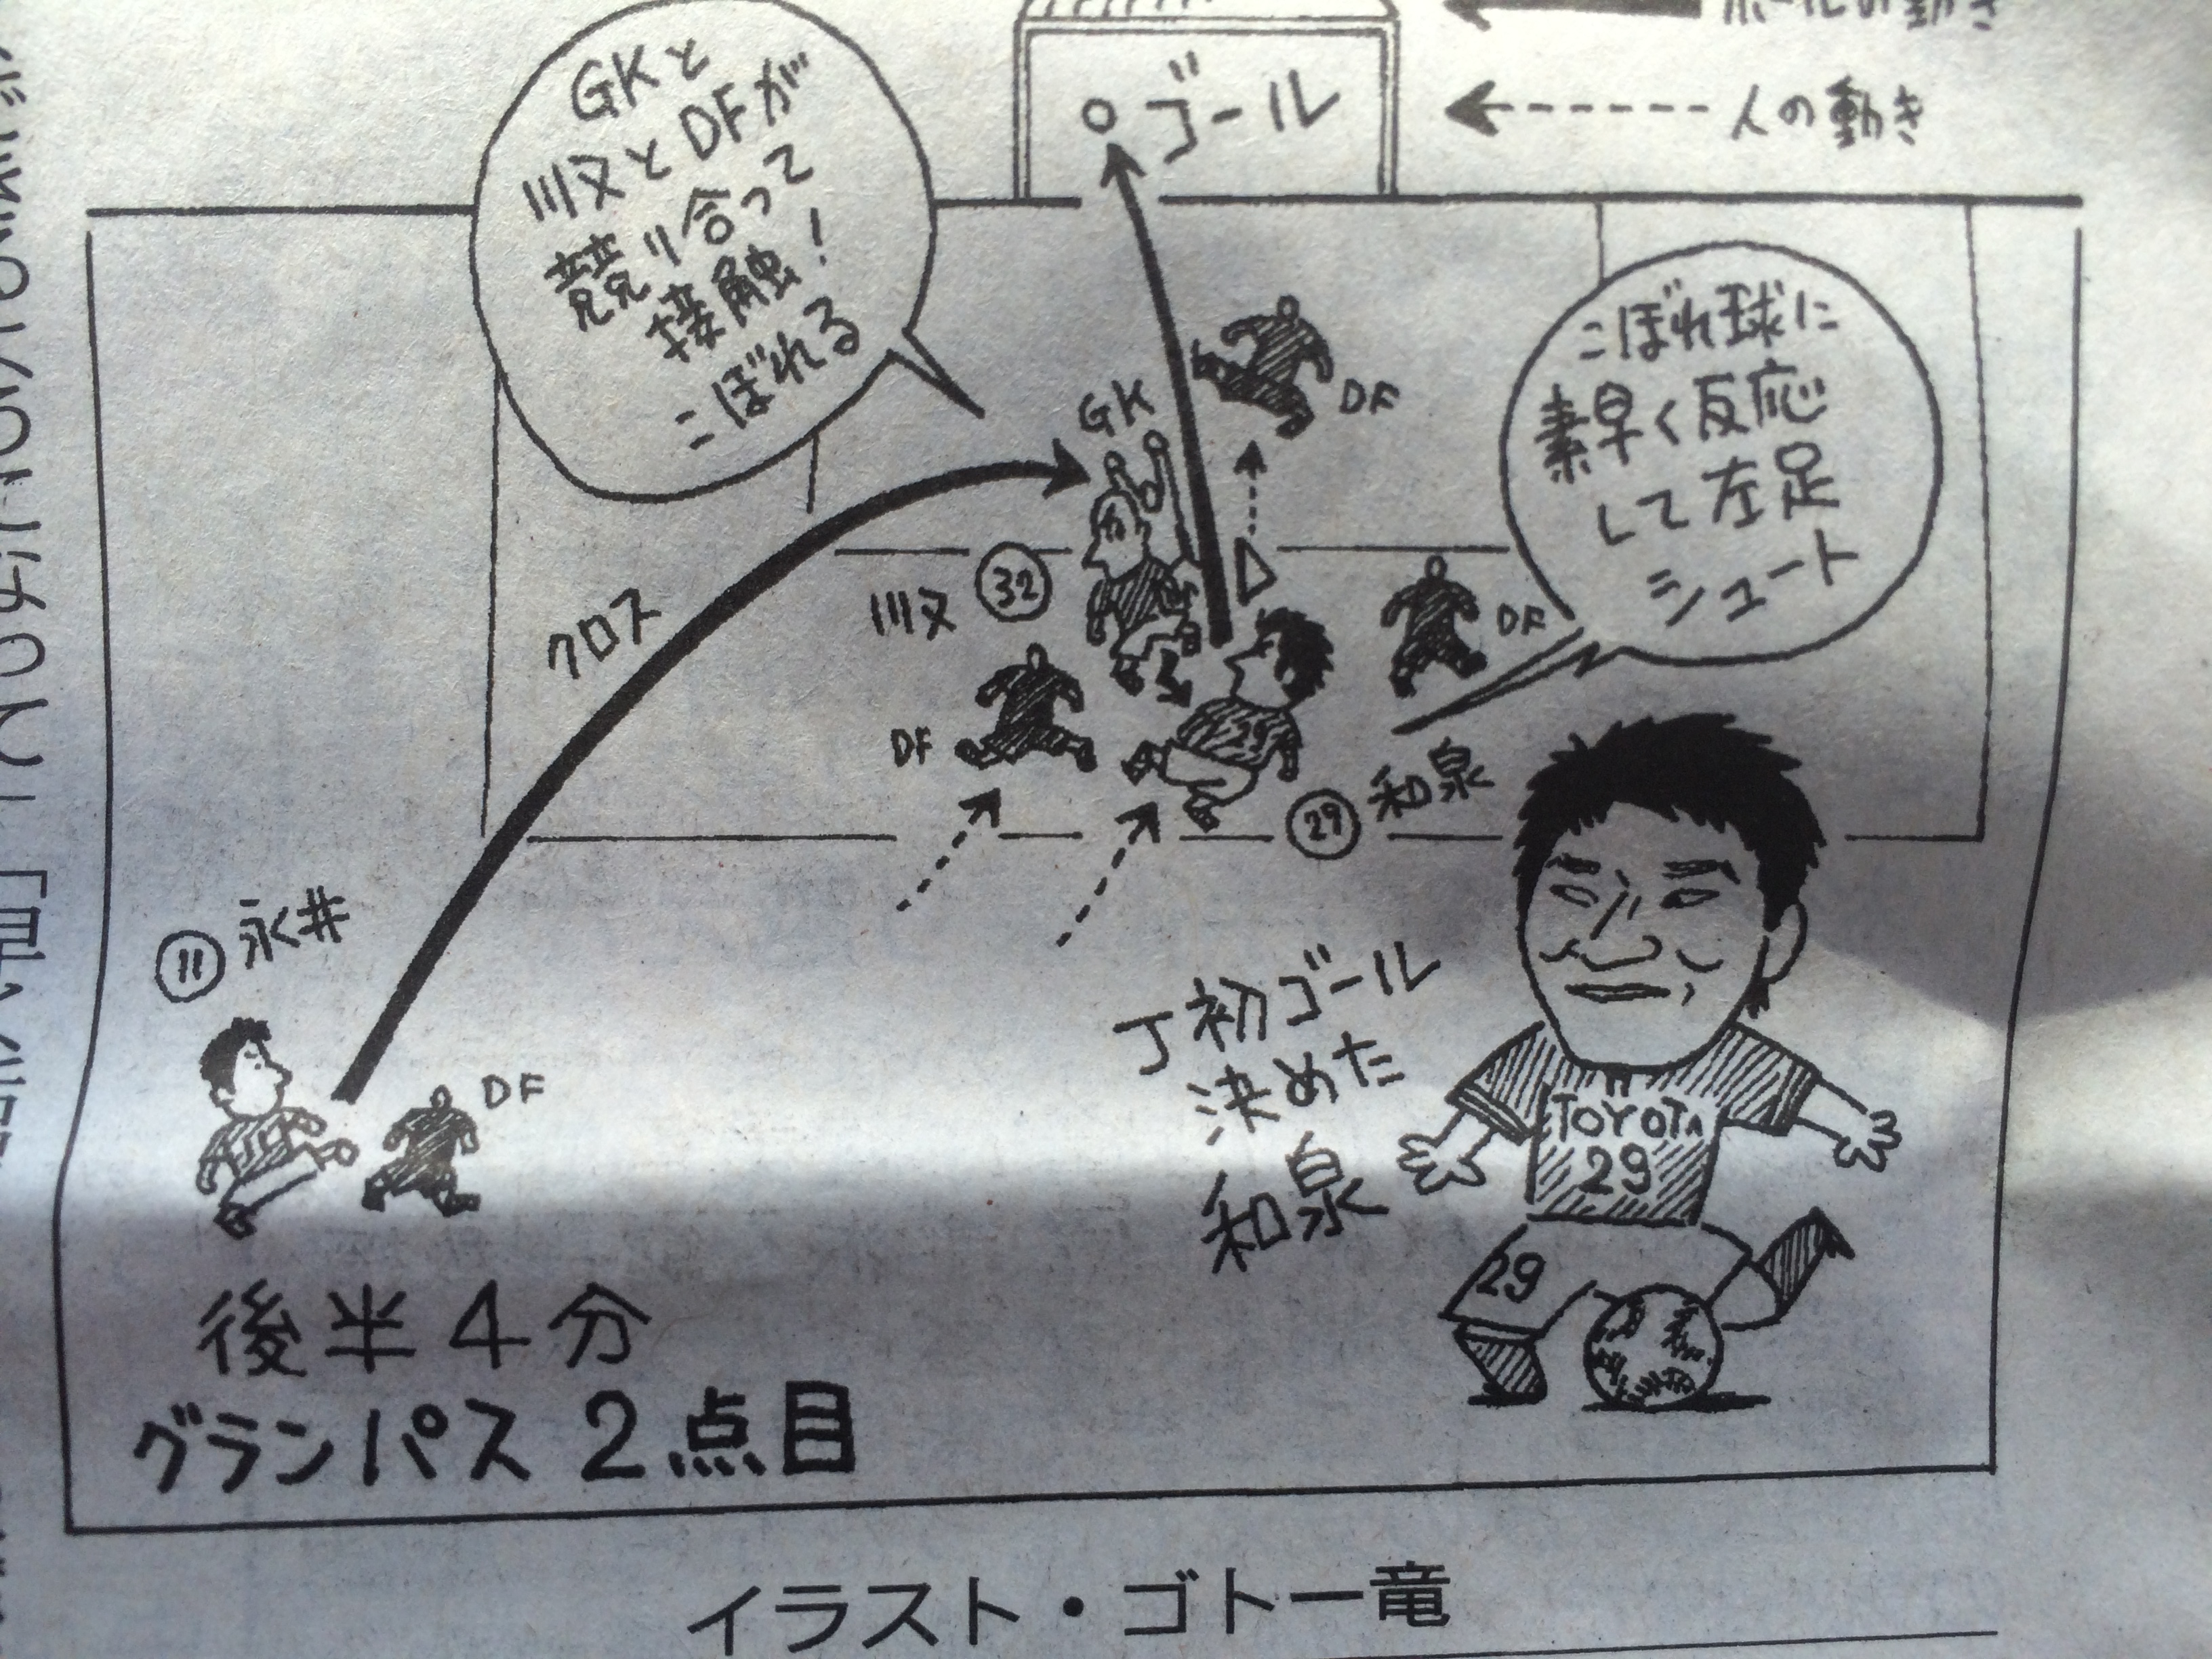 ボールの動き
人の動き
ゴール
GKと
川又とDFが
競り合って
接触!
こぼれる
こぼれ球に
素早く反応
して左足
シュート
GK
DF
クロス
川又 32
DF
DF
29 和泉
29
11 永井
DF
J初ゴール
決めた
和泉
TOYOTA
29
29
後半4分
グランパス2点目
イラスト・ゴトー竜